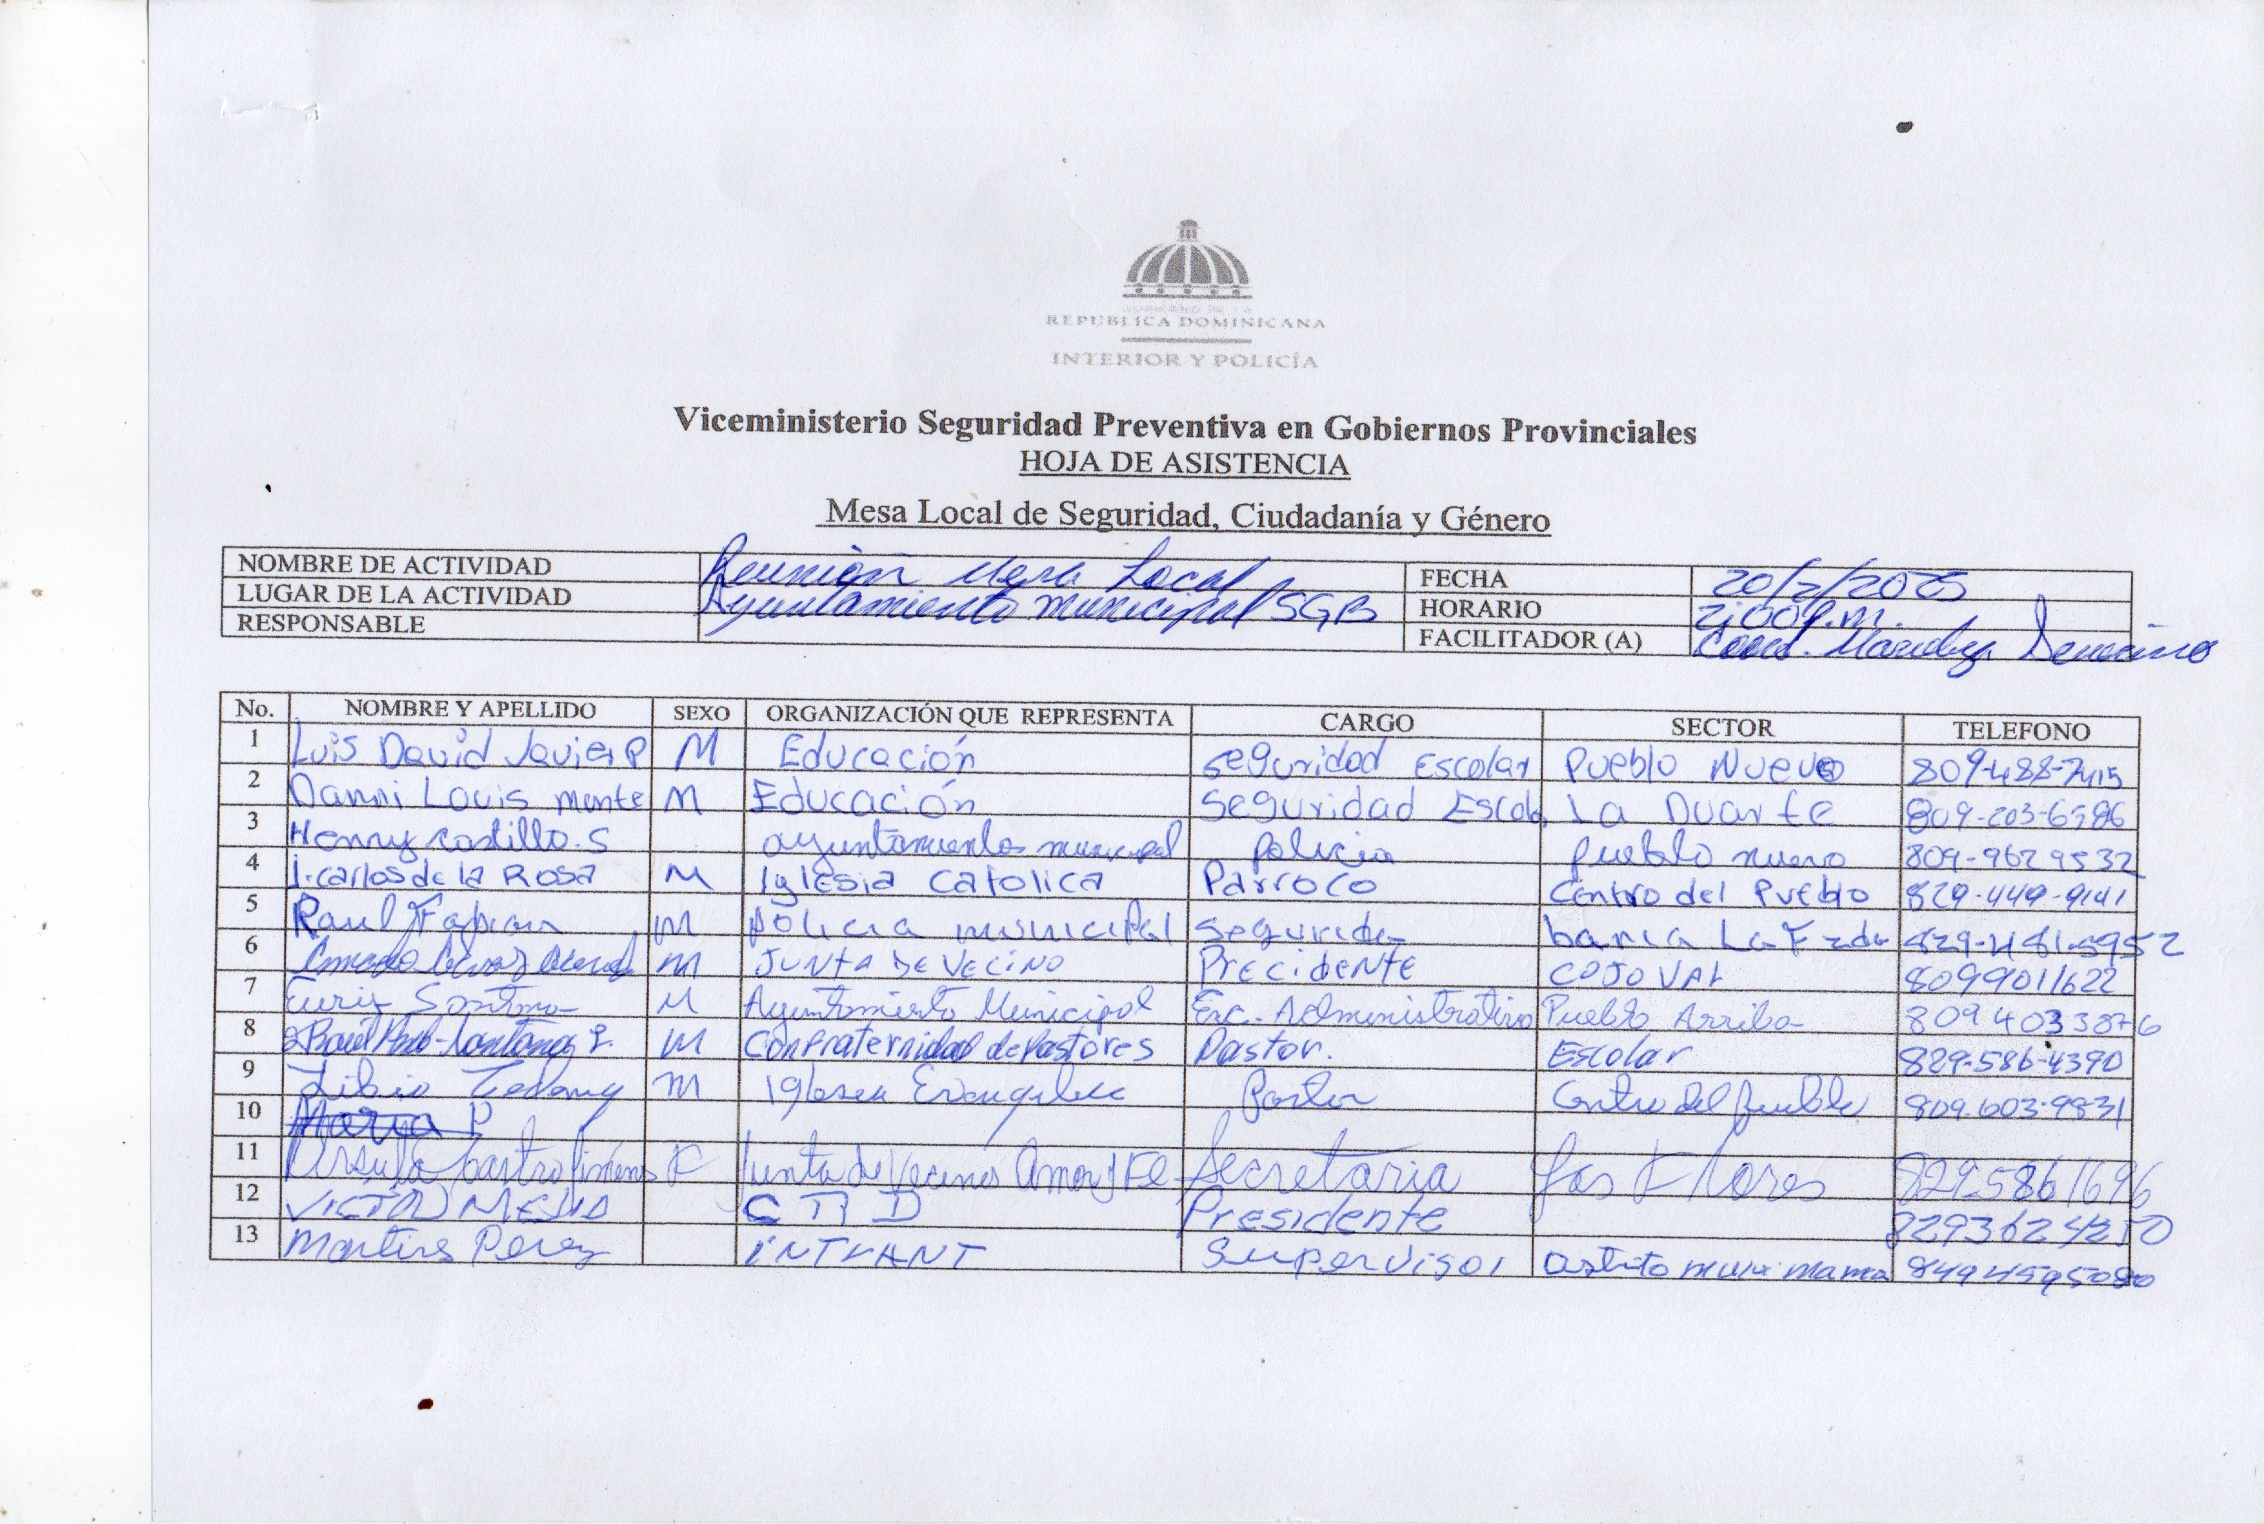 GOBIERNO DE LA
REPÚBLICA DOMINICANA
INTERIOR Y POLICÍA
Viceministerio Seguridad Preventiva en Gobiernos Provinciales
HOJA DE ASISTENCIA
Mesa Local de Seguridad, Ciudadanía y Género
NOMBRE DE ACTIVIDAD Reunión Mesa Local FECHA 20/2/2025
LUGAR DE LA ACTIVIDAD Ayuntamiento municipal SGB HORARIO 2:00 p.m.
RESPONSABLE FACILITADOR (A) Coord.
No. NOMBRE Y APELLIDO SEXO ORGANIZACIÓN QUE REPRESENTA CARGO SECTOR TELEFONO
1 Luis David Javier P M Educación Seguridad Escolar Pueblo Nuevo 809-488-7415
2 Danni Louis monte M Educación Seguridad Escolar La Duarte 809-203-6586
3 Henry Castillo. S ayuntamiento municipal policia pueblo nuevo 809-9629532
4 J. carlos de la Rosa M Iglesia Catolica Parroco Centro del Pueblo 829-449-9141
5 Raul Fabian m policia municipal Segurida 829-481-5952
6 m JUNTA DE VECINO PRECIDENTE COJOVAL 8099011622
7 M Ayuntamiento Municipal Enc. Administrativo Pueblo Arriba 8094033876
8 m Confraternidad de Pastores Pastor. Escolar 829-586-4390
9 m Iglesia Evangelica Pastor Centro del pueblo 809-603-9831
10 Maria P
11 Ursula Castro F Junta de Vecinos Amor y Fe Secretaria Las Flores 829-5861696
12 VICTOR MEJIA Presidente 8293624250
13 Martires Perez INTRANT Supervisor 8494595080